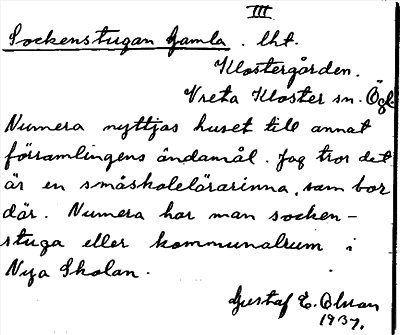 III
Sockenstugan Gamla. lht.
Klostergården.
Vreta Kloster sn. Ögl.
Numera nyttjas huset till annat
församlingens ändamål. Jag tror det
är en småskolelärarinna, som bor
där. Numera har man socken-
stuga eller kommunalrum i
Nya Skolan.
Gustaf E. Olsson
1937.